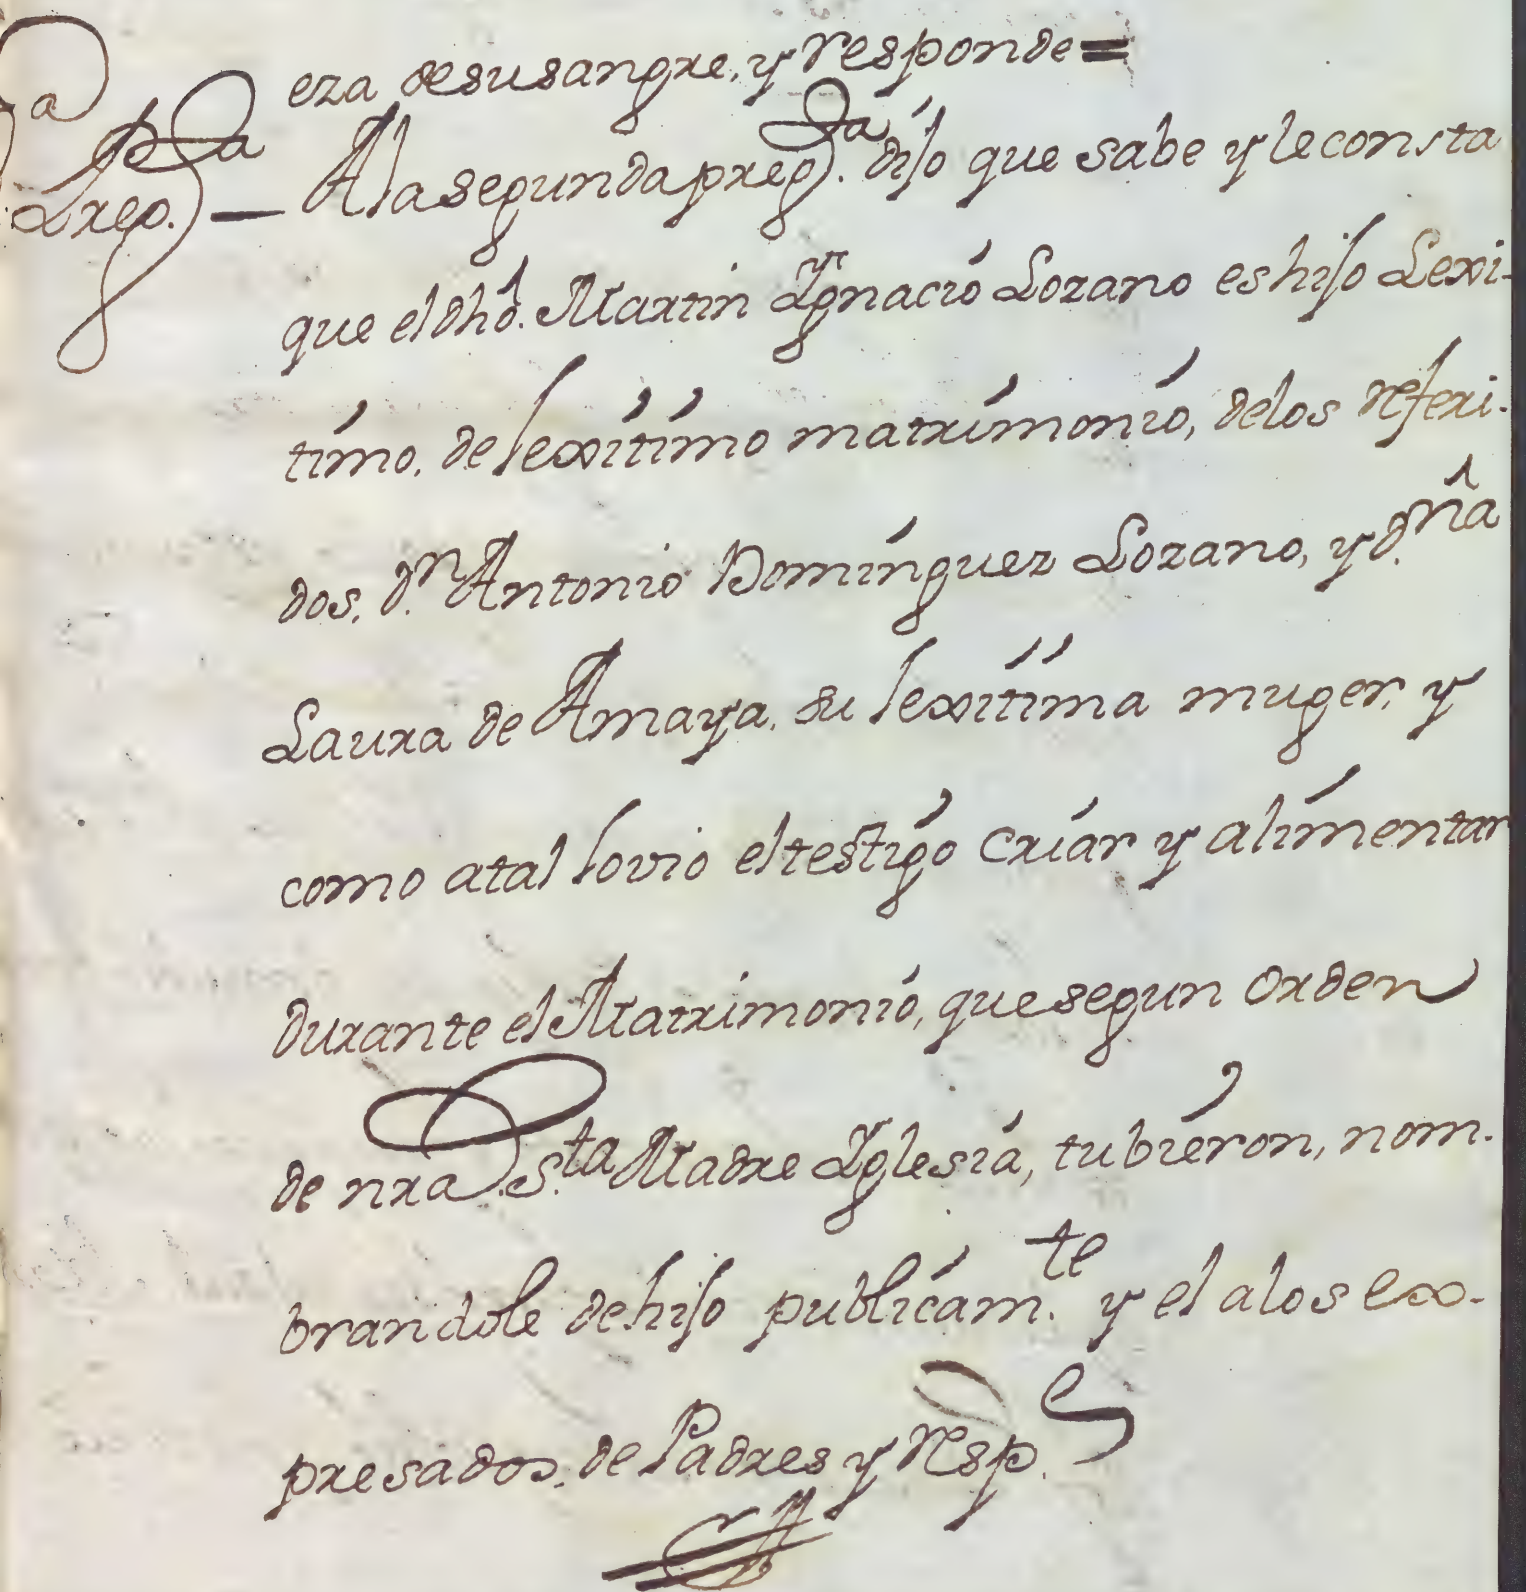 eza de su sangre, y responde=
2.ª Preg.ta — A la segunda preg.ta dijo que sabe y le consta
que el dho. Martin Ygnacio Lozano es hijo Lexi-
timo, de lexitimo matrimonio, de los referi-
dos, d.n Antonio Dominguez Lozano, y d.ña
Laura de Amaya, su lexitima muger, y
como a tal lo vio el testigo criar y alimentar
durante el Matrimonio, que segun Orden
de nra S.ta Madre Yglesia, tubieron, nom-
brandole de hijo publicam.te y el a los ex-
presados, de Padres y resp.e